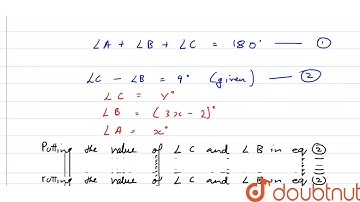 ∠A + ∠B + ∠C = 180° — ①
∠C - ∠B = 9° (given) — ②
∠C = y°
∠B = (3x - 2)°
∠A = x°
Putting the value of ∠C and ∠B in eq ②
rutting the value of ∠C and ∠B in eq ②
doubtnut